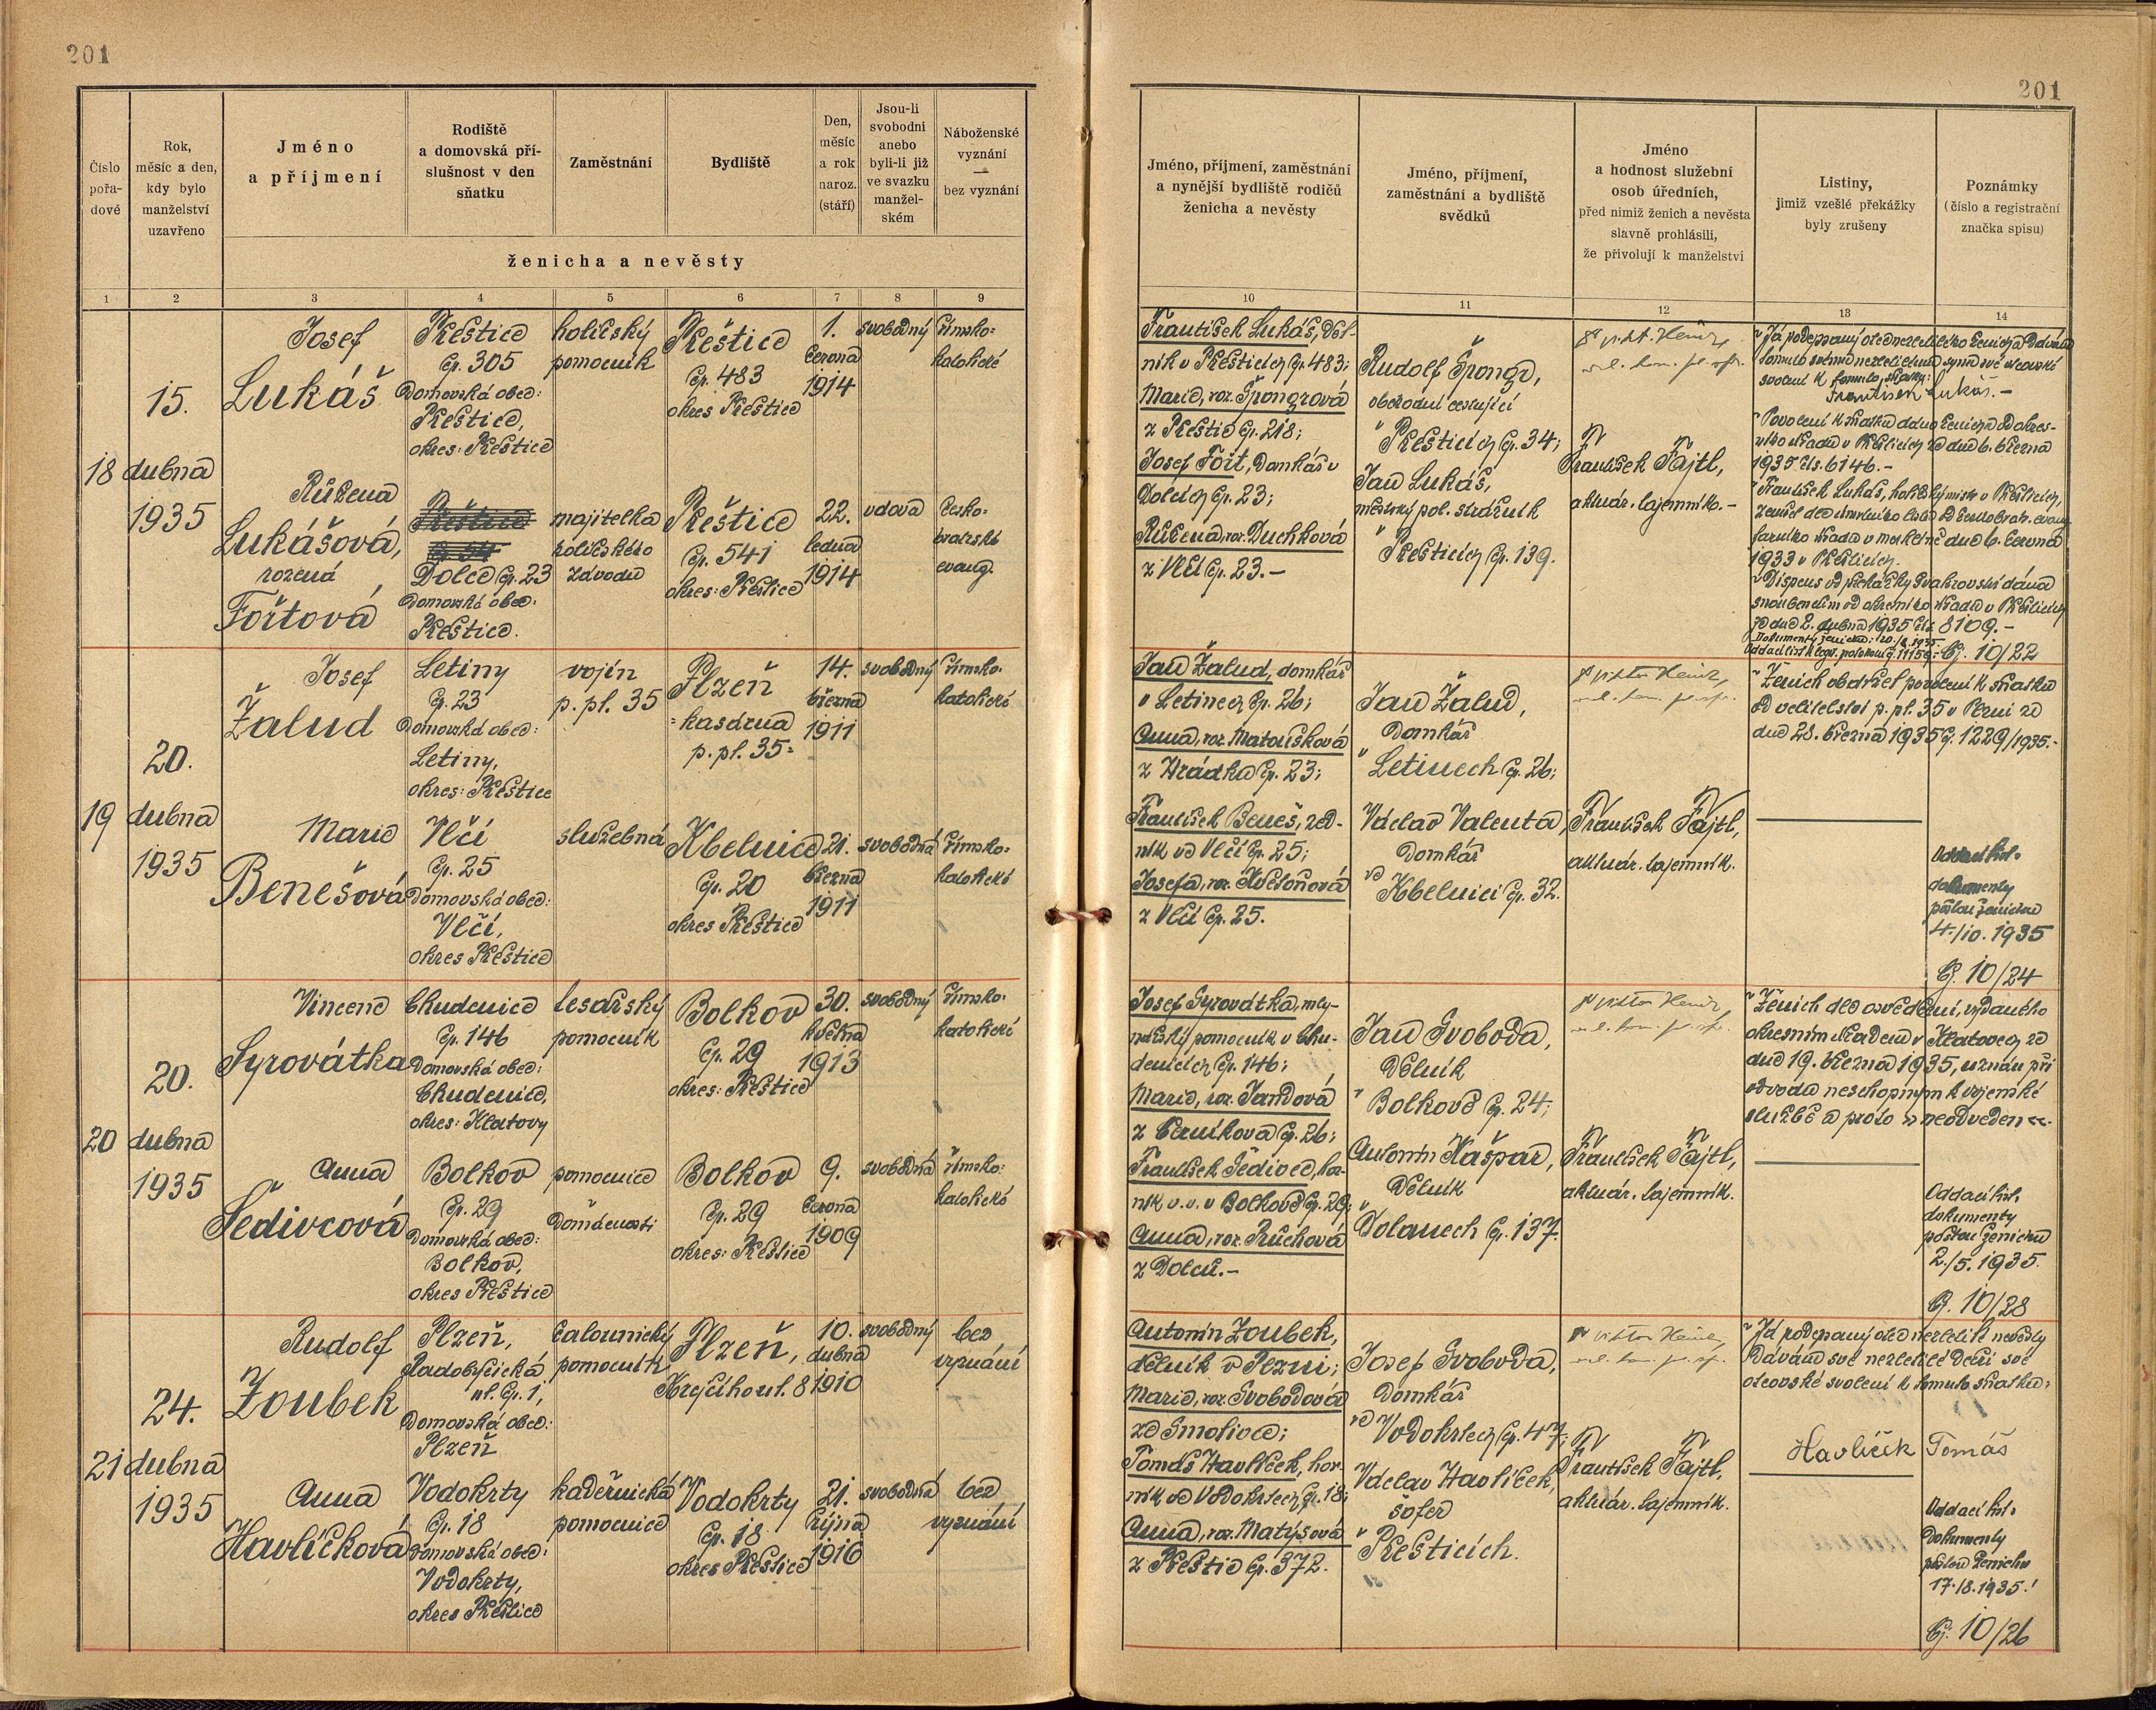 201
201
Číslo pořa- dové
Rok, měsíc a den, kdy bylo manželství uzavřeno
Jméno a příjmení
Rodiště a domovská pří- slušnost v den sňatku
Zaměstnání
Bydliště
Den, měsíc a rok naroz. (stáří)
Jsou-li svobodni anebo byli-li již ve svazku manžel- ském
Náboženské vyznání — bez vyznání
ženicha a nevěsty
1 2 3 4 5 6 7 8 9
Jméno, příjmení, zaměstnání a nynější bydliště rodičů ženicha a nevěsty
Jméno, příjmení, zaměstnání a bydliště svědků
Jméno a hodnost služební osob úředních, před nimiž ženich a nevěsta slavně prohlásili, že přivolují k manželství
Listiny, jimiž vzešlé překážky byly zrušeny
Poznámky (číslo a registrační značka spisu)
10 11 12 13 14
18
15.
dubna
1935
Josef
Lukáš
Přeštice
čp. 305
Domovská obec:
Přeštice,
okres: Přeštice
holičský
pomocník
Přeštice
čp. 483
okres Přeštice
1.
června
1914
svobodný
římsko-
katolické
Růžena
Lukášová,
rozená
Fořtová
Přeštice
čp. 54
Dolce čp. 23
Domovská obec:
Přeštice.
majitelka
holičského
závodu
Přeštice
čp. 541
okres: Přeštice
22.
ledna
1914
vdova
česko-
bratrské
evang.
František Lukáš, děl-
ník v Přešticích čp. 483;
Marie, roz. Špongrová
z Přeštic čp. 218;
Josef Fořt, domkář v
Dolcích čp. 23;
Růžena, roz. Duchková
z Vlčí čp. 23.-
Rudolf Špongr,
obchodní cestující
v Přešticích čp. 34;
Jan Lukáš,
městský pol. strážník
v Přešticích čp. 139.
František Fajtl,
aktuár. tajemník.-
Já podepsaný otec nezletilého ženicha dávám
tomuto svému nezletilému synu své otcovské
svolení k tomuto sňatku:
František Lukáš.-
Povolení k sňatku dáno ženichu od okres-
ního úřadu v Přešticích ze dne 6. března
1935 čís. 6146.-
František Lukáš, holičský mistr v Přešticích,
zemřel dle úmrtního listu od českobratr. evang.
farního úřadu v Merklíně dne 6. června
1933 v Přešticích.
Dispens od překážky švakrovství dána
snoubencům od okresního úřadu v Přešticích
ze dne 2. dubna 1935 čís. 8109.-
čj. 10/22
19
20.
dubna
1935
Josef
Žalud
Letiny
čp. 23
Domovská obec:
Letiny,
okres: Přeštice
vojín
p. pl. 35
Plzeň
=kasárna
p. pl. 35=
14.
března
1911
svobodný
římsko-
katolické
Marie
Benešová
Vlčí
čp. 25
Domovská obec:
Vlčí,
okres Přeštice
služebná
Kbelnice
čp. 20
okres Přeštice
21.
března
1911
svobodná
římsko-
katolické
Jan Žalud, domkář
v Letinech čp. 26;
Anna, roz. Matoušková
z Hrádku čp. 23;
František Beneš, zed-
ník ve Vlčí čp. 25;
Josefa, roz. Květoňová
z Vlčí čp. 25.
Jan Žalud,
domkář
v Letinech čp. 26;
Václav Valenta,
domkář
ve Kbelnici čp. 32.
František Fajtl,
aktuár. tajemník.
Ženich obdržel povolení k sňatku
od velitelství p. pl. 35 v Plzni ze
dne 28. března 1935 čj. 1229/1935.-
Oddací list.
dokumenty
poštou ženichu
4./10. 1935
čj. 10/24
20
20.
dubna
1935
Vincenc
Syrovátka
Chudenice
čp. 146
Domovská obec:
Chudenice,
okres: Klatovy
tesařský
pomocník
Bolkov
čp. 29
okres: Přeštice
30.
května
1913
svobodný
římsko-
katolické
Anna
Šedivcová
Bolkov
čp. 29
Domovská obec:
Bolkov,
okres Přeštice
pomocnice
v domácnosti
Bolkov
čp. 29
okres: Přeštice
9.
června
1909
svobodná
římsko-
katolické
Josef Syrovátka, mly-
nářský pomocník v Chu-
denicích čp. 146;
Marie, roz. Jandová
z Černíkova čp. 26;
František Šedivec, hor-
ník v. v. v Bolkově čp. 29;
Anna, roz. Růchová
z Dolců.-
Jan Svoboda,
dělník
v Bolkově čp. 24;
Antonín Kašpar,
dělník
v Dolanech čp. 137.
František Fajtl,
aktuár. tajemník.
Ženich dle osvědčení, vydaného
okresním úřadem v Klatovech ze
dne 19. března 1935, uznán při
odvodu neschopným k vojenské
službě a proto „neodveden“.
Oddací list.
dokumenty
poštou ženichu
2./5. 1935.
čj. 10/28
21
24.
dubna
1935
Rudolf
Zoubek
Plzeň,
Radobyčická
ul. čp. 1,
Domovská obec:
Plzeň
čalounický
pomocník
Plzeň,
Krejčího ul. 8
10.
dubna
1910
svobodný
bez
vyznání
Anna
Havlíčková
Vodokrty
čp. 18
Domovská obec:
Vodokrty,
okres Přeštice
kadeřnická
pomocnice
Vodokrty
čp. 18
okres Přeštice
21.
října
1916
svobodná
bez
vyznání
Antonín Zoubek,
dělník v Plzni;
Marie, roz. Svobodová
ze Smolivce;
Tomáš Havlíček, hor-
ník ve Vodokrtech čp. 18;
Anna, roz. Matýsová
z Přeštic čp. 372.
Josef Svoboda,
domkář
ve Vodokrtech čp. 47;
Václav Havlíček,
šofér
v Přešticích.
František Fajtl,
aktuár. tajemník.
Já podepsaný otec nezletilé nevěsty
dávám své nezletilé dceři své
otcovské svolení k tomuto sňatku:
Havlíček Tomáš
Oddací list.
Dokumenty
poštou ženichu
17./8. 1935.
čj. 10/26